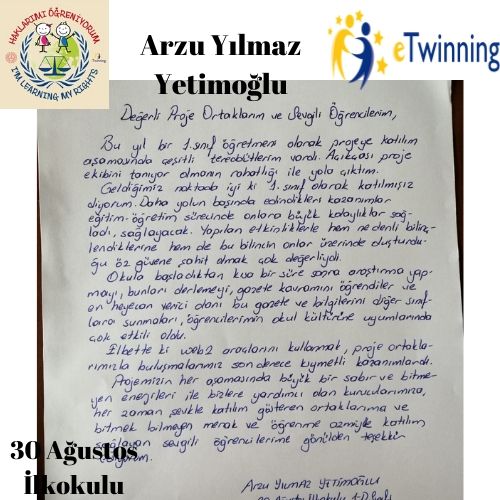 HAKLARIMI ÖĞRENİYORUM
I'M LEARNING MY RIGHTS
Arzu Yılmaz
Yetimoğlu
eTwinning
Değerli Proje Ortaklarım ve Sevgili Öğrencilerim,
Bu yıl bir 1.sınıf öğretmeni olarak projeye katılım
aşamasında çeşitli tereddütlerim vardı. Açıkçası proje
ekibini tanıyor olmanın rahatlığı ile yola çıktım.
Geldiğimiz noktada iyi ki 1.sınıf olarak katılmışız
diyorum. Daha yolun başında edindikleri kazanımlar
eğitim-öğretim sürecinde onlara büyük kolaylık sağ-
ladı, sağlayacak. Yapılan etkinliklerle hem nedenli bilinç-
lendiklerine hem de bu bilincin onlar üzerinde oluşturdu-
ğu öz güvene şahit olmak çok değerliydi.
Okula başladıktan kısa bir süre sonra araştırma yap-
mayı, bunları derlemeyi, gazete kavramını öğrendiler ve
en heyecan verici olanı bu gazete ve bilgilerini diğer sınıf-
lara sunmaları, öğrencilerimin okul kültürüne uyumlarında
çok etkili oldu.
Elbette ki web2 araçlarını kullanmak, proje ortakla-
rımızla buluşmalarımız son derece kıymetli kazanımlardı.
Projemizin her aşamasında büyük bir sabır ve bitme-
yen enerjileri ile bizlere yardımcı olan kurucularımıza,
her zaman şevkle katılım gösteren ortaklarıma ve
bitmek bilmeyen merak ve öğrenme azmiyle katılım
sağlayan sevgili öğrencilerime gönülden teşekkür
ediyorum.
Arzu YILMAZ YETİMOĞLU
30 Ağustos İlkokulu 1-D
30 Ağustos
İlkokulu